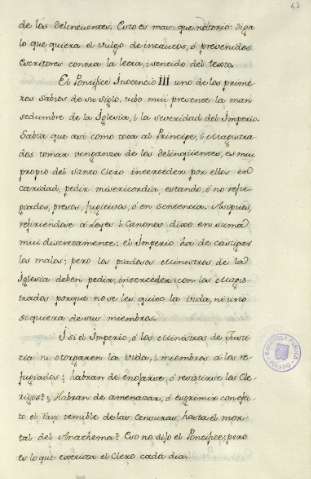 de los delincuentes. Esto es mas que notorio: diga
lo que quiera el vulgo de inéducos, ó prevenidos
Escritores contra la letra, i sentido del texto.
El Pontifice Inocencio III uno de los prime-
ros Sabios de su siglo, tubo mui presente la man-
sedumbre de la Iglesia, i la severidad del Imperio.
Sabia que asi como toca al Principe, i Magistra-
dos tomar venganza de los delinqüentes, es mui
propio del Stato Clero interceder por ellos en
caridad, pedir misericordia, estando, ó no refu-
giados, presos, fugitivos, ó en sentencia. Aqui,
refiriendose á Leyes i Canones dixo en suma
mui discretamente: el Imperio ha de castigar
los malos; pero los piadosos Ministros de la
Iglesia deben pedir, interceder con los Magis-
trados porque no se les quite la vida, ni uno
siquiera de sus miembros.
I si el Imperio, ó los Ministros de Justi-
cia ni otorgaren la vida, i miembros a los re-
fugiados; habran de enojarse, ó resistirse los Cle-
rigos? Habran de amenazar, ó esgrimir con efec-
to el rayo temible de las Censuras, hasta el mor-
tal del Anathema? Eso no dijo el Pontifice; pero
es lo que executa el Clero cada dia.